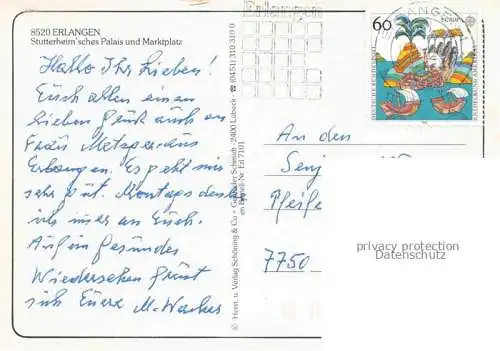 8520 ERLANGEN
Stutterheim'sches Palais und Marktplatz
Hallo Ihr Lieben!
Euch allen einen
lieben Gruß auch an
Frau aus
Erlangen. Es geht mir
sehr gut. Montags denke
ich immer an Euch.
Auf ein gesundes
Wiedersehen grüßt
Euch Eure M.
© Horst. u. Verlag Schöning & Co + Gebrüder Schmidt · 2400 Lübeck ☎ (04 51) 310 310 0
Bestell-Nr. Erl 7101
Erlangen
60
EUROPA
DEUTSCHE BUNDESPOST
An den
Senj
Pfeife
7750
privacy protection
Datenschutz